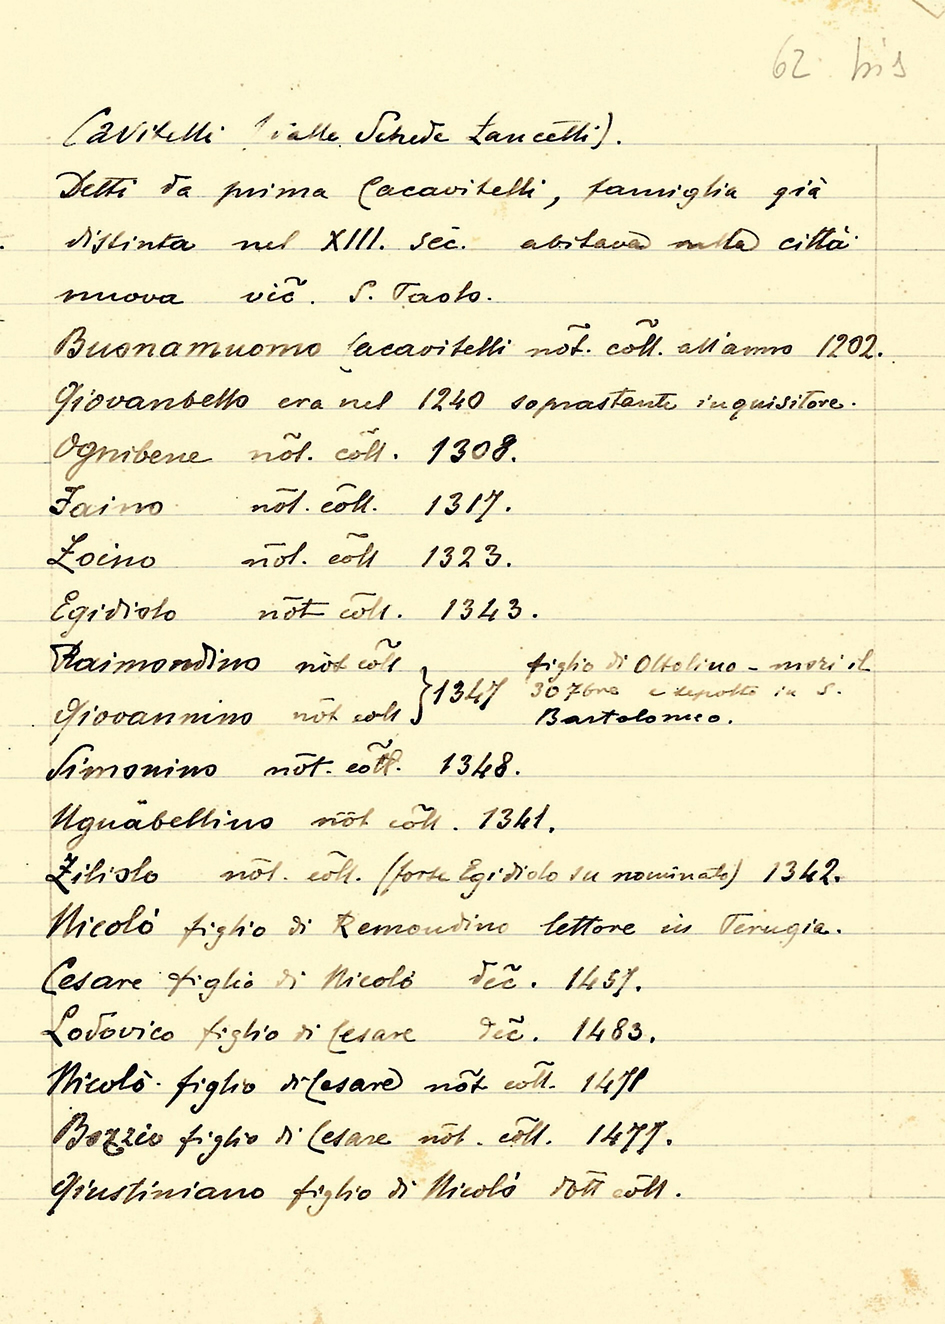 62 bis
Cavitelli (dalle Schede Lancetti).
Detti da prima Cacavitelli, famiglia già
distinta nel XIII. sec. abitava nella città
nuova vic̃. S. Paolo.
Buonamuomo Cacavitelli nõt. cõll. all'anno 1202.
Giovanbello era nel 1240 soprastante inquisitore.
Ognibene nõt. cõll. 1308.
Faino nõt. cõll. 1317.
Zoino nõt. cõll 1323.
Egidiolo nõt cõll. 1343.
Raimondino nõt cõll
Giovannino nõt coll } 1347 figlio di Ottolino - morì il
30 7bre e sepolto in S.
Bartolomeo.
Simonino nõt. cõll. 1348.
Uguãbellino nõt cõll. 1341.
Ziliolo nõt. cõll. (forse Egidiolo su nominato) 1342.
Nicolò figlio di Remondino lettore in Perugia.
Cesare figlio di Nicolò dec̃. 1457.
Lodovico figlio di Cesare dec̃. 1483.
Nicolò figlio di Cesare nõt cõll.
Bozzio figlio di Cesare nõt. cõll. 1477.
Giustiniano figlio di Nicolò dott̃ cõll.